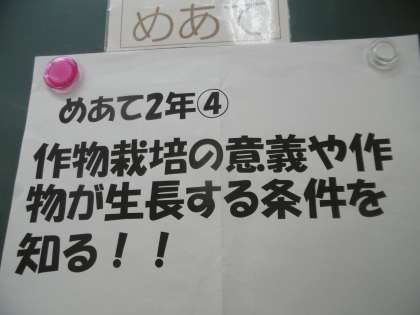 めあて
めあて2年④
作物栽培の意義や作
物が生長する条件を
知る！！